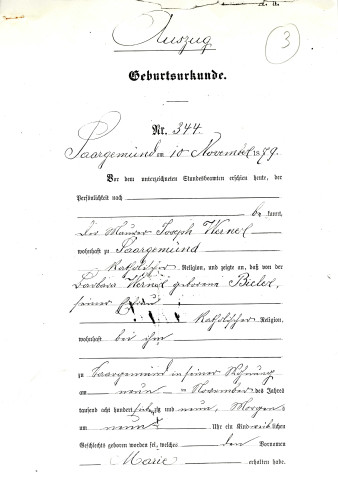 Auszug
3
Geburtsurkunde.
Nr. 344.
Saargemünd am 10 November 1879.
Vor dem unterzeichneten Standesbeamten erschien heute, der
Persönlichkeit nach
be kannt,
Der Maurer Joseph Wernet
wohnhaft zu Saargemünd
katholischer Religion, und zeigte an, daß von der
Barbara Wernet geborene Bieler,
seiner Ehefrau
katholischer Religion,
wohnhaft bei ihm
zu Saargemünd in seiner Wohnung
am neun November des Jahres
tausend acht hundert siebenzig und neun, Morgens
um neun Uhr ein Kind weiblichen
Geschlechts geboren worden sei, welches den Vornamen
Marie erhalten habe.